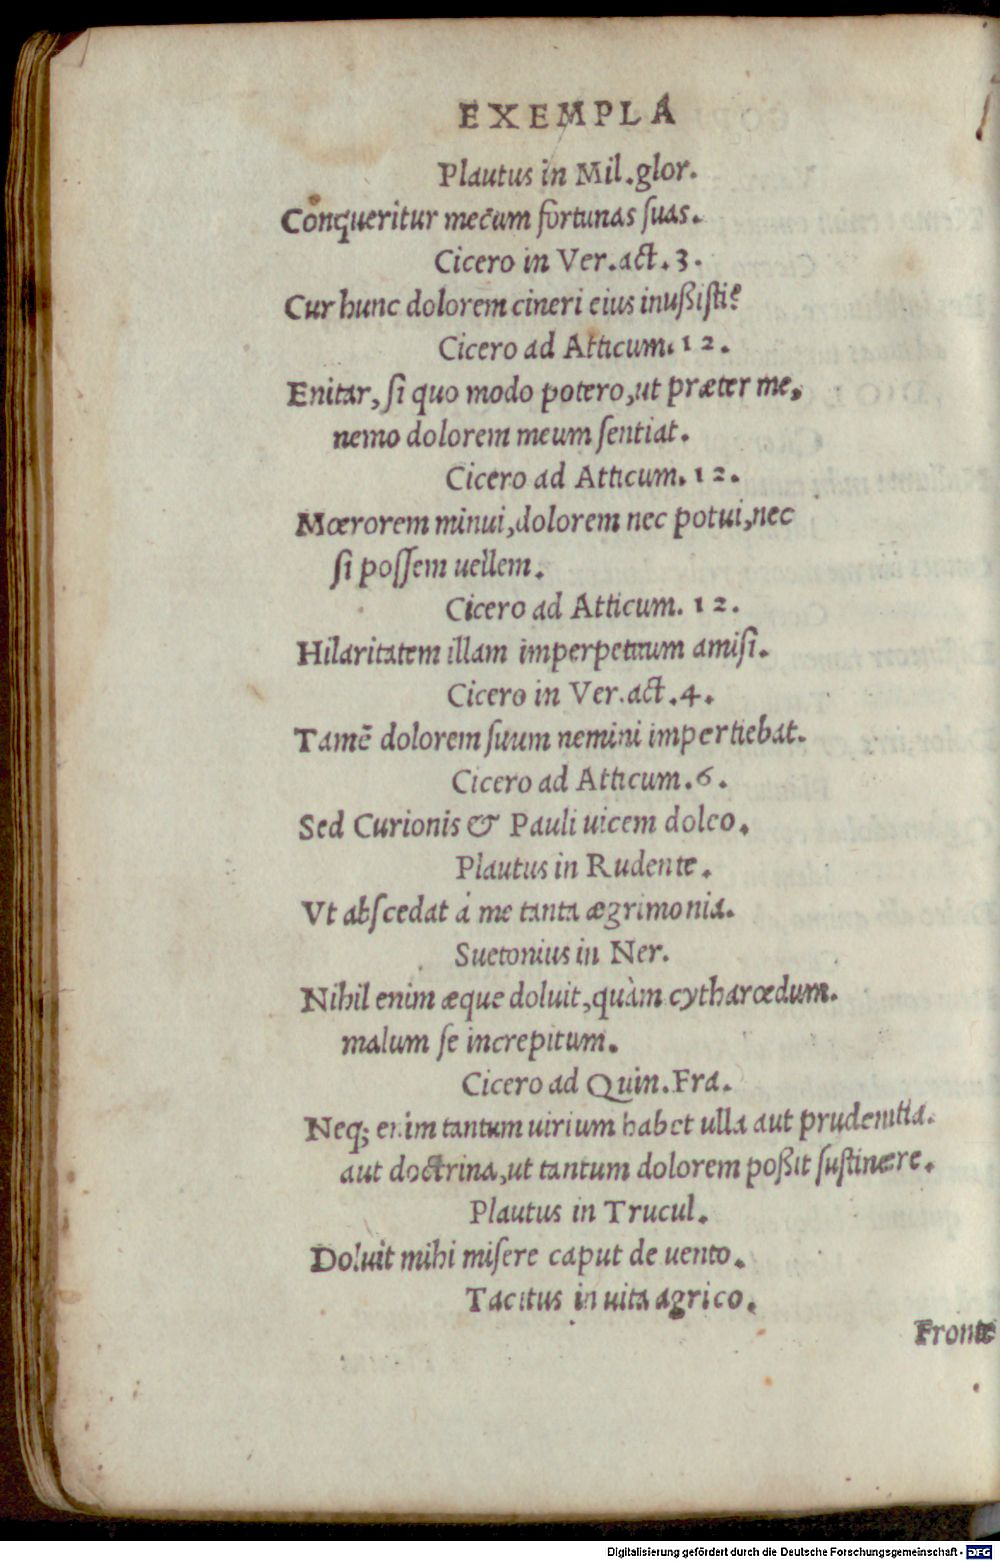 EXEMPLA
Plautus in Mil.glor.
Conqueritur mecum fortunas suas.
Cicero in Ver.act.3.
Cur hunc dolorem cineri eius inußisti?
Cicero ad Atticum.12.
Enitar, si quo modo potero,ut præter me,
nemo dolorem meum sentiat.
Cicero ad Atticum.12.
Mœrorem minui,dolorem nec potui,nec
si possem uellem.
Cicero ad Atticum.12.
Hilaritatem illam imperpetuum amisi.
Cicero in Ver.act.4.
Tamē dolorem suum nemini impertiebat.
Cicero ad Atticum.6.
Sed Curionis & Pauli uicem doleo.
Plautus in Rudente.
Vt abscedat á me tanta ægrimonia.
Suetonius in Ner.
Nihil enim æque doluit,quàm cytharœdum.
malum se increpitum.
Cicero ad Quin.Fra.
Neq; enim tantum uirium habet ulla aut prudentia.
aut doctrina,ut tantum dolorem poßit sustinere.
Plautus in Trucul.
Doluit mihi misere caput de uento.
Tacitus in uita agrico.
Fronte
Digitalisierung gefördert durch die Deutsche Forschungsgemeinschaft - DFG